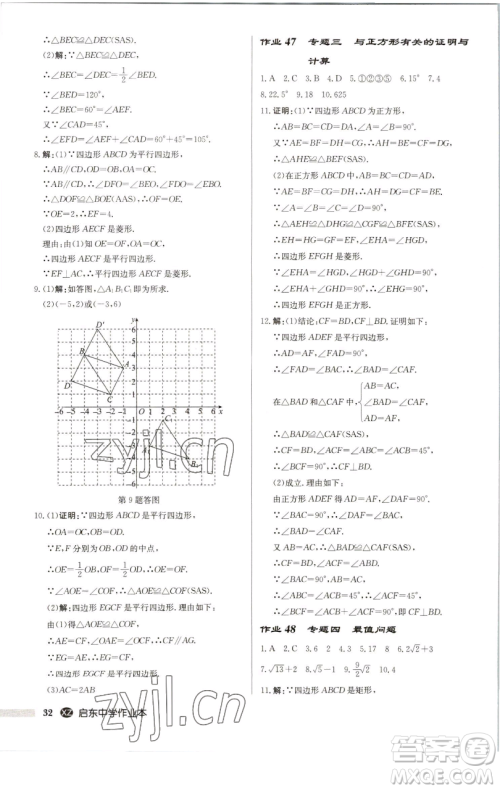 ∴△BEC≌△DEC(SAS).
(2)解:∵△BEC≌△DEC,
∴∠BEC=∠DEC=1/2∠BED.
∵∠BED=120°,
∴∠BEC=60°=∠AEF.
∵∠CAD=45°,
∴∠EFD=∠AEF+∠CAD=105°.
8.解:(1)∵四边形ABCD为平行四边形,
∴AB∥CD,OB=OD,OA=OC.
∵OE=2,∴EF=4.
(2)四边形AECF是菱形.
理由:由(1)知OE=OF,OA=OC,
∴四边形AECF是平行四边形.
∵EF⊥AC,∴四边形AECF是菱形.
9.(1)解:如答图,△A₁B₁C₁即为所求.
(2)(-5,2)或(-3,6)
第9题答图
10.(1)证明:∵四边形ABCD是平行四边形,
∴OA=OC,OB=OD.
∵E,F分别为OB,OD的中点,
∴OE=1/2OB,OF=1/2OD.
∴OE=OF.
∵∠AOE=∠COF,
∴△AOE≌△COF(SAS).
(2)解:四边形EGCF是平行四边形.理由如下:
由(1)得△AOE≌△COF,
∴AE=CF,∠OAE=∠OCF.
∴AE∥CF.
∵EG=AE,∴EG=CF.
∴四边形EGCF是平行四边形.
(3)AC=2AB
32 XZ 启东中学作业本
作业47 专题三 与正方形有关的证明与
计算
1.A 2.C 3.B 4.D 5.①③⑤ 6.15° 7.4
8.22.5° 9.18 10.625
11.证明:(1)∵四边形ABCD为正方形,
∴AB=BC=CD=DA.
又∵AE=BF=CG=DH,
∴AH=BE=CF=DG.
∵∠A=∠B=90°,
∴△AHE≌△BEF(SAS).
(2)在正方形ABCD中,
∵AE=BF=CG=DH,
∴∠A=∠B=∠C=∠D=90°.
∴EH=HG=GF=EF,∠AHE=∠DGH.
∵∠DGH+∠DHG=90°,
∴∠AHE+∠DHG=90°.
∴∠EHG=90°.
∴四边形EFGH是正方形.
12.解:(1)结论:CF=BD,CF⊥BD.证明如下:
∵四边形ADEF是正方形,
∴AD=AF,∠DAF=90°.
∴∠CAF=∠BAD=90°.
在△BAD和△CAF中,
AB=AC,
∠BAD=∠CAF,
AD=AF,
∴△BAD≌△CAF(SAS).
∴CF=BD,∠ACF=∠ABC=45°.
∴∠BCF=90°.∴CF⊥BD.
(2)成立.理由如下:
由正方形ADEF得AD=AF,∠DAF=90°.
∵∠BAC=90°,
∴∠DAF=∠BAC.
∴∠DAB=∠FAC.
又AB=AC,∴△DAB≌△FAC(SAS).
∴CF=BD,∠ACF=∠ABD.
∵∠BAC=90°,AB=AC,
∴∠ABC=45°.∴∠ACF=45°.
∴∠BCF=∠ACB+∠ACF=90°,即CF⊥BD.
作业48 专题四 最值问题
1.A 2.C 3.D 4.6 5.2 6.2√2+3
7.√13+2 8.√5 9.9/2√2 10.4
11.解:∵四边形ABCD是矩形,
zyjl.cn
zyjl.cn